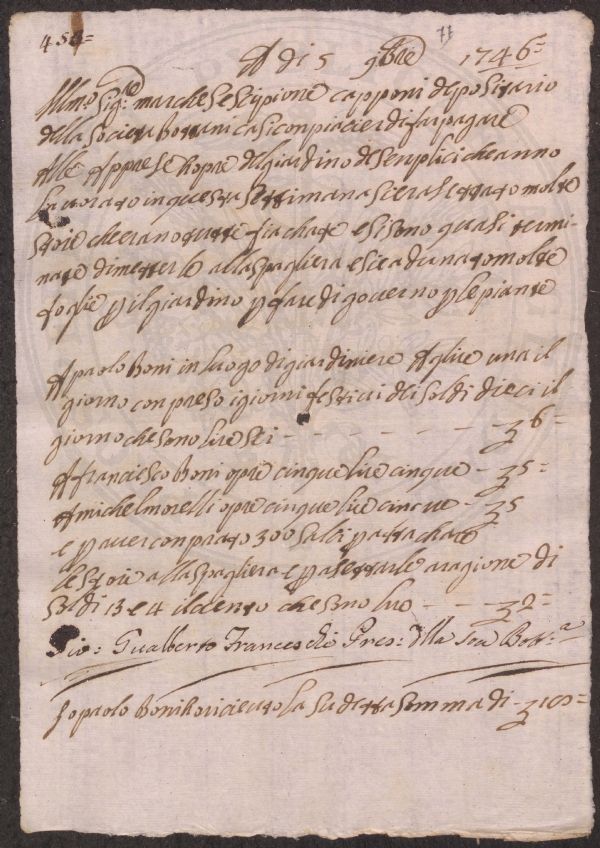 454=
71
A di 5 9bre 1746=
Illmo Sigre marchese scipione capponi depositario
della societa Bottanica si conpiacier di far pagare
Alle Apprese hopre del giardino de senplici che anno
lavorato in questa settimana si era setta to molte
stoie che erano tutte fiachate e si sono quasi termi-
nate di metterle alla spagliera e si e adunato molte
foglie p il giardino p fare di governo p le piante
A paolo Boni in luogo di giardiniere A lire una il
giorno conpreso i giorni festivi di soldi dieci il
giorno che sono lire sei - - - - - - - 6=
A francesco Boni opre cinque lire cinque - 5=
A michel morelli opre cinque lire cinque - 5
e p aver conprato 300 salci p attachare
le stoie alla spagliera e p asettarle a ragione di
soldi 13 e 4 il cento che sono lire - - - 2=
Gio: Gualberto Franceschi Pres: della Soc Bott:a
Io paolo Boni ho riceuto la su detta somma di -